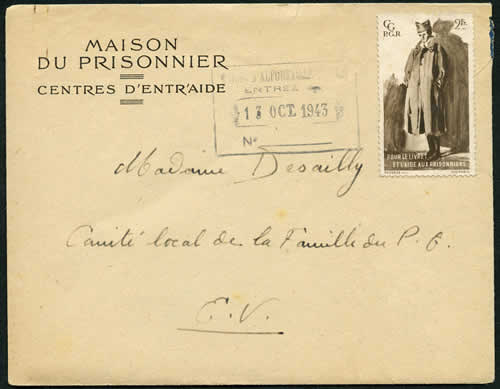 MAISON
DU PRISONNIER
CENTRES D'ENTR'AIDE
D'ALFORTVILLE
ENTRÉE
13 OCT 1943
N°
CG
P.G.R.
2Fr.
POUR LE LIVRET
ET L'AIDE AUX PRISONNIERS
Madame Desailly
Comité local de la Famille du P. G.
E.V.